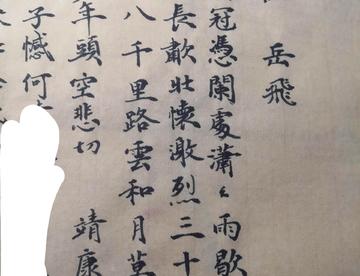 岳飛
冠憑闌處瀟〻雨歇
長歗壯懷激烈三十
八千里路雲和月莫
年頭空悲切 靖康
子憾何